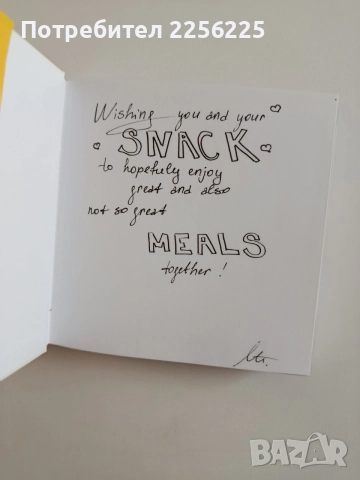 Потребител 2256225
Wishing you and your
SNACK
to hopefully enjoy
great and also
not so great
MEALS
together!
BAZAR